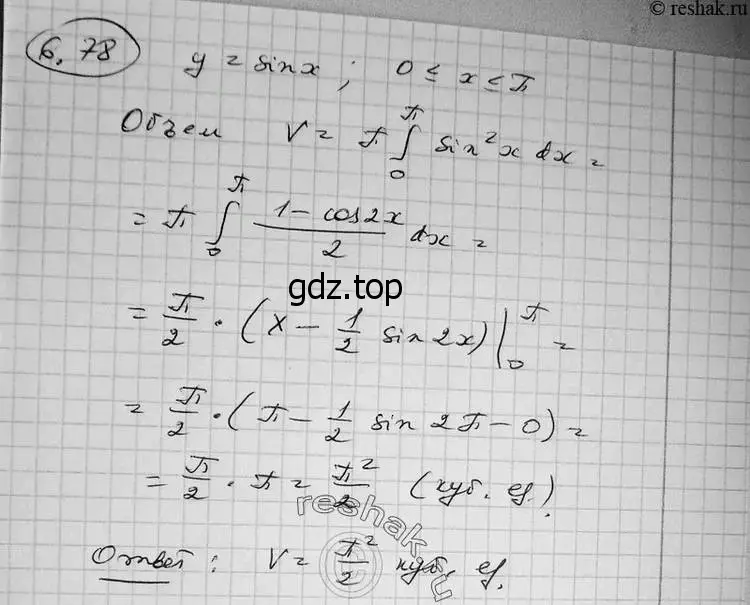 © reshak.ru
6.78 y = sin x ; 0 ≤ x ≤ π
Объем V = π ∫₀^π sin² x dx =
= π ∫₀^π (1 - cos 2x)/2 dx =
gdz.top
= π/2 · (x - 1/2 sin 2x) |₀^π =
= π/2 · (π - 1/2 sin 2π - 0) =
= π/2 · π = π²/2 (куб. ед.)
reshak.ru
©
Ответ : V = π²/2 куб. ед.